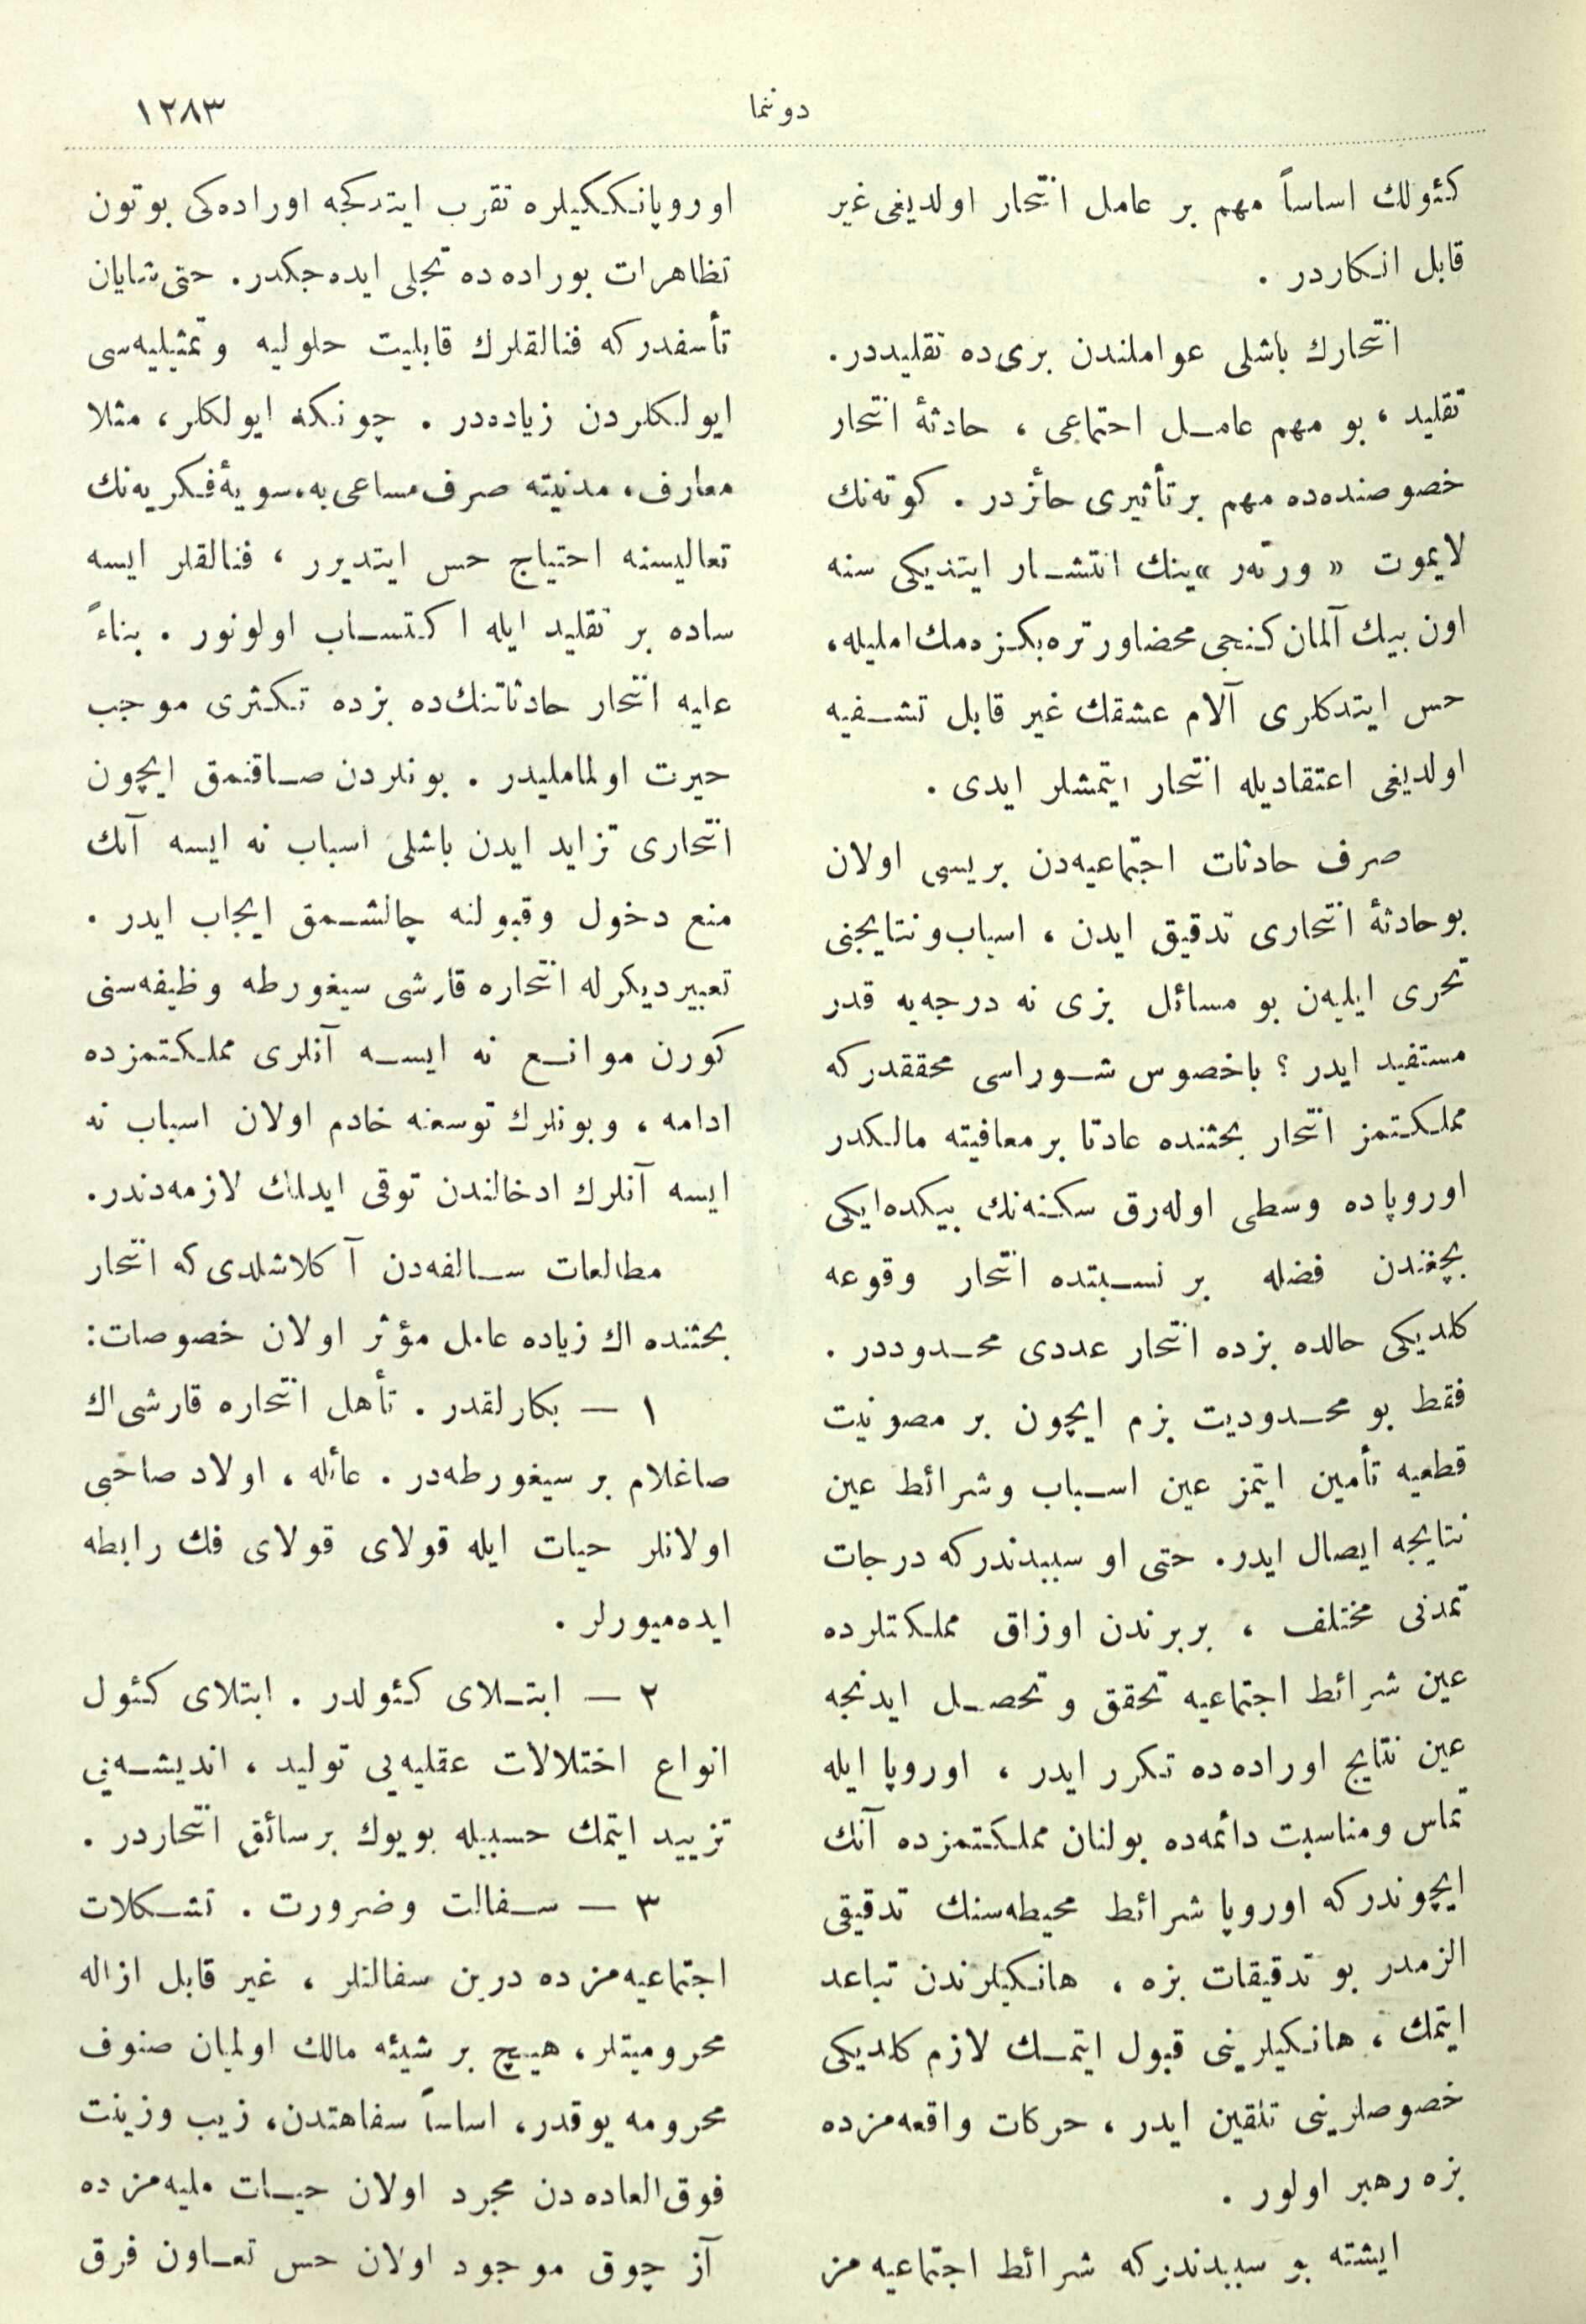 دوننما
١٢٨٣
كئولك اساساً مهم بر عامل انتحار اولديغى غير
قابل انكاردر .
انتحارك باشلى عواملندن برى‌ده تقليددر.
تقليد ، بو مهم عامـل اجتماعى ، حادثهٔ انتحار
خصوصنده‌ده مهم بر تأثيرى حائزدر . كوته‌نك
لايموت « ورته‌ر »ينك انتشـار ايتديكى سنه
اون بيك آلمان كنجى محضا ورتره بكزه‌مك امليله،
حس ايتدكلرى آلام عشقك غير قابل تشـفيه
اولديغى اعتقاديله انتحار ايتمشلر ايدى .
صرف حادثات اجتماعيه‌دن بريسى اولان
بوحادثهٔ انتحارى تدقيق ايدن ، اسباب‌ونتايجنى
تحرى ايليه‌ن بو مسائل بزى نه درجه‌يه قدر
مستفيد ايدر ؟ باخصوص شـوراسى محققدركه
مملكتمز انتحار بحثنده عادتا بر معافيته مالكدر
اوروپاده وسطى اوله‌رق سكنه‌نك بيكده‌ايكى
بچغندن فضله بر نسـبتده انتحار وقوعه
كلديكى حالده بزده انتحار عددى محـدوددر .
فقط بو محـدوديت بزم ايچون بر مصونيت
قطعيه تأمين ايتمز عين اسـباب وشرائط عين
نتايجه ايصال ايدر. حتى او سببدندركه درجات
تمدنى مختلف ، بربرندن اوزاق مملكتلرده
عين شرائط اجتماعيه تحقق و تحصـل ايدنجه
عين نتايج اوراده‌ده تكرر ايدر ، اوروپا ايله
تماس ومناسبت دائمه‌ده بولنان مملكتمزده آنك
ايچوندركه اوروپا شرائط محيطه‌سنك تدقيقى
الزمدر بو تدقيقات بزه ، هانكيلرندن تباعد
ايتمك ، هانكيلرينى قبول ايتمـك لازم كلديكى
خصوصلرينى تلقين ايدر ، حركات واقعه‌مزده
بزه رهبر اولور .
ايشته بو سببدندركه شرائط اجتماعيه‌مز
اوروپانككيلره تقرب ايتدكجه اوراده‌كى بوتون
تظاهرات بوراده‌ده تجلى ايده‌جكدر. حتى شايان
تأسفدركه فنالقلرك قابليت حلوليه وتمثيليه‌سى
ايولكلردن زياده‌در . چونكه ايولكلر، مثلا
معارف، مدنيته صرف مساعى‌يه، سويهٔ‌فكريه‌نك
تعاليسنه احتياج حس ايتديرر ، فنالقلر ايسه
ساده بر تقليد ايله اكتسـاب اولونور . بناءً
عليه انتحار حادثاتنك‌ده بزده تكثرى موجب
حيرت اولماملیدر . بونلردن صـاقنمق ايچون
انتحارى تزايد ايدن باشلى اسباب نه ايسه آنك
منع دخول وقبولنه چالشـمق ايجاب ايدر .
تعبيرديكرله انتحاره قارشى سيغورطه وظيفه‌سنى
كورن موانـع نه ايسـه آنلرى مملكتمزده
ادامه ، وبونلرك توسعنه خادم اولان اسباب نه
ايسه آنلرك ادخالندن توقى ايدلمك لازمه‌دندر.
مطالعات سـالفه‌دن آكلاشلدى‌كه انتحار
بحثنده اك زياده عامل مؤثر اولان خصوصات:
١ — بكارلقدر . تأهل انتحاره قارشى‌اك
صاغلام بر سيغورطه‌در . عائله ، اولاد صاحبى
اولانلر حيات ايله قولاى قولاى فك رابطه
ايده‌ميورلر .
٢ — ابتـلاى كئولدر . ابتلاى كئول
انواع اختلالات عقليه‌يى توليد ، انديشـه‌يى
تزييد ايتمك حسبيله بويوك برسائق انتحاردر .
٣ — سـفالت وضرورت . تشـكلات
اجتماعيه‌مزده درين سفالتلر ، غير قابل ازاله
محروميتلر، هيـچ بر شيئه مالك اولميان صنوف
محرومه يوقدر، اساساً سفاهتدن، زيب وزينت
فوق‌العاده‌دن مجرد اولان حيـات مليه‌مزده
آز چوق موجود اولان حس تعـاون فرق